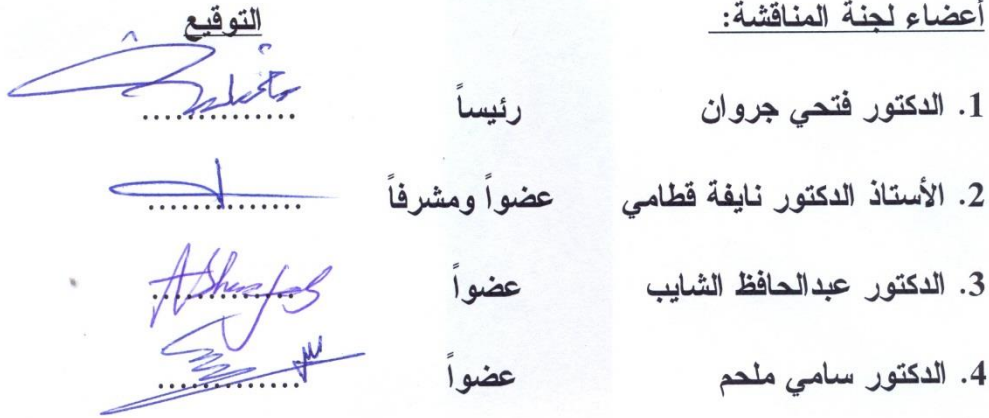 أعضاء لجنة المناقشة: التوقيع
1. الدكتور فتحي جروان رئيساً ..............
2. الأستاذ الدكتور نايفة قطامي عضواً ومشرفاً ..............
3. الدكتور عبدالحافظ الشايب عضواً ..............
4. الدكتور سامي ملحم عضواً ..............